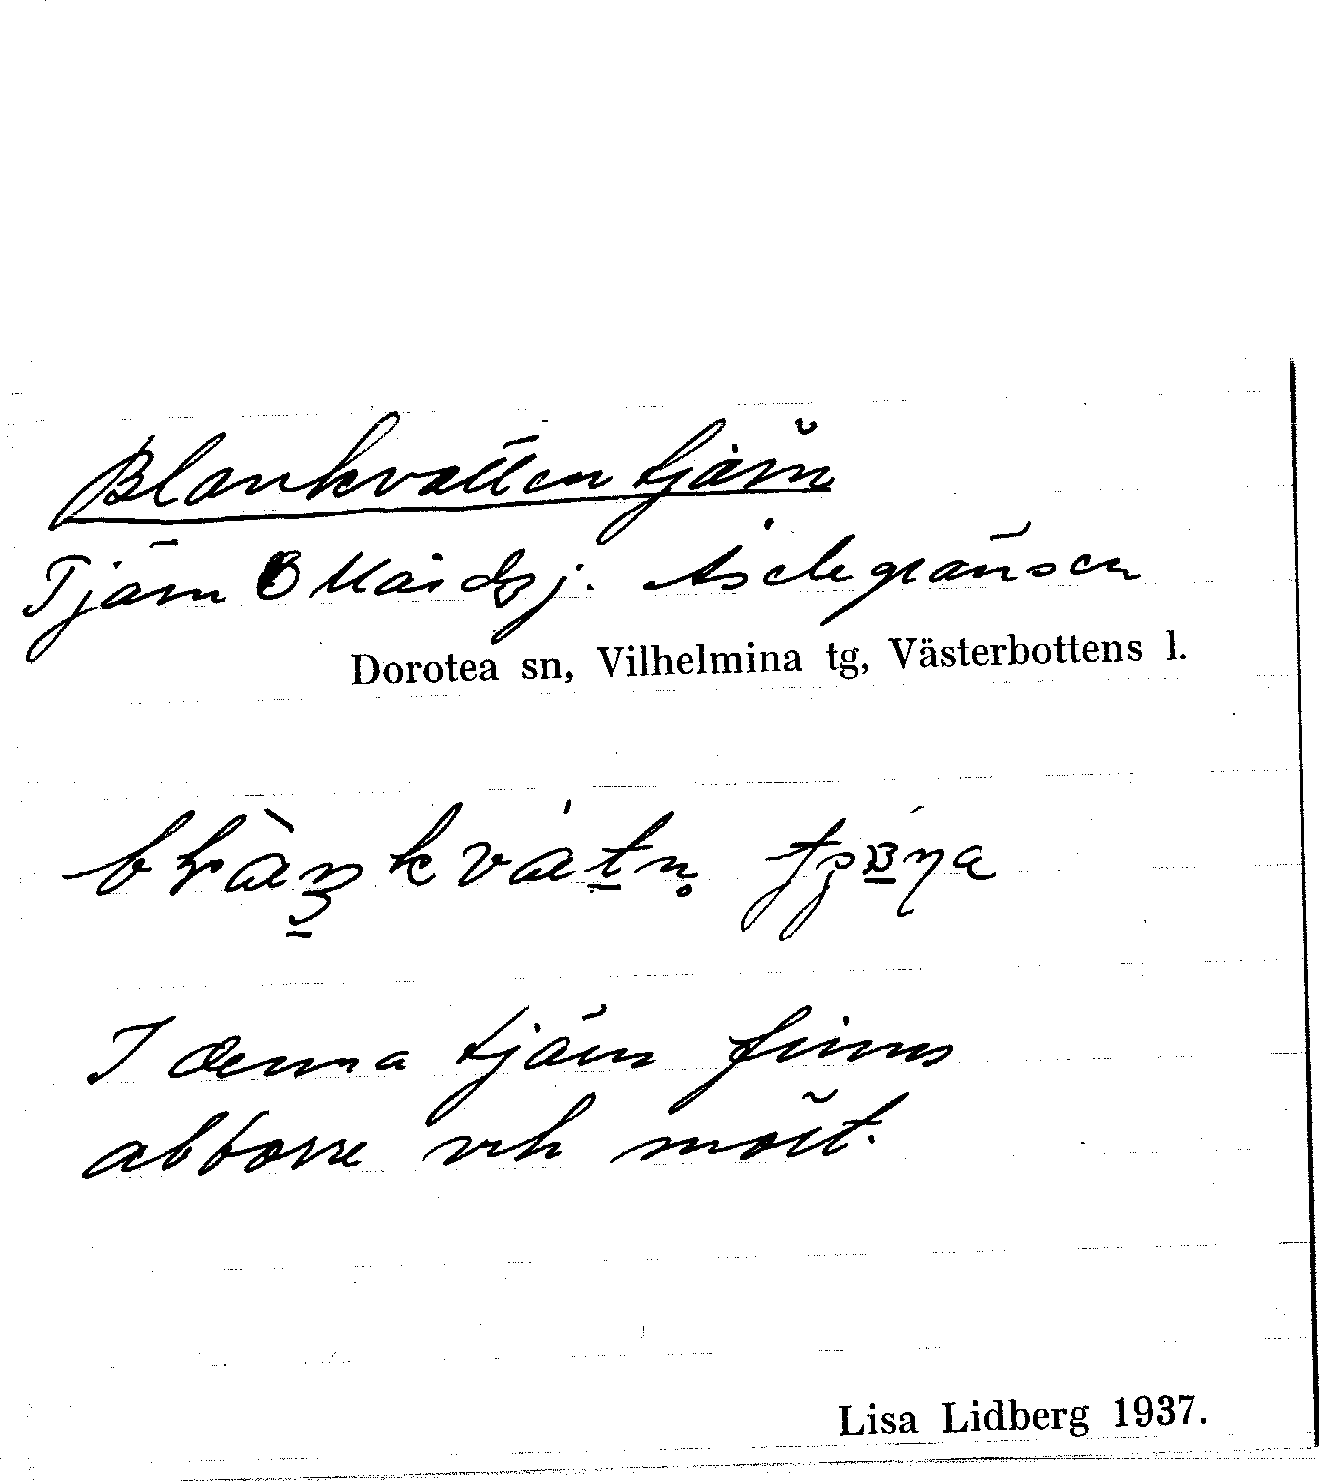 Blankvattentjärn
Tjärn Ö Kåsdsj. Åselegränsen
Dorotea sn, Vilhelmina tg, Västerbottens l.
I denna tjärn finns
abborre och mört.
Lisa Lidberg 1937.